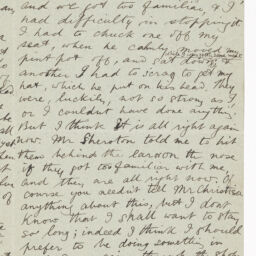 and we got too familiar, & I
had difficulty in stopping it.
I had to chuck one off my
seat, when he calmly moved my
pint pot off, and sat down
another I had to scrag to get my
hat, which he put on his head. They
were, luckily, not so strong as I
or I couldn't have done anything.
But I think it is all right again
now. Mr Sherston told me to hit
them behind the ear or on the nose
if they got too familiar with me
and they are all right now. Of
course you needn't tell Mr Christison
anything about this, but I don't
know that I shall want to stay
so long; indeed I think I should
prefer to be doing something in